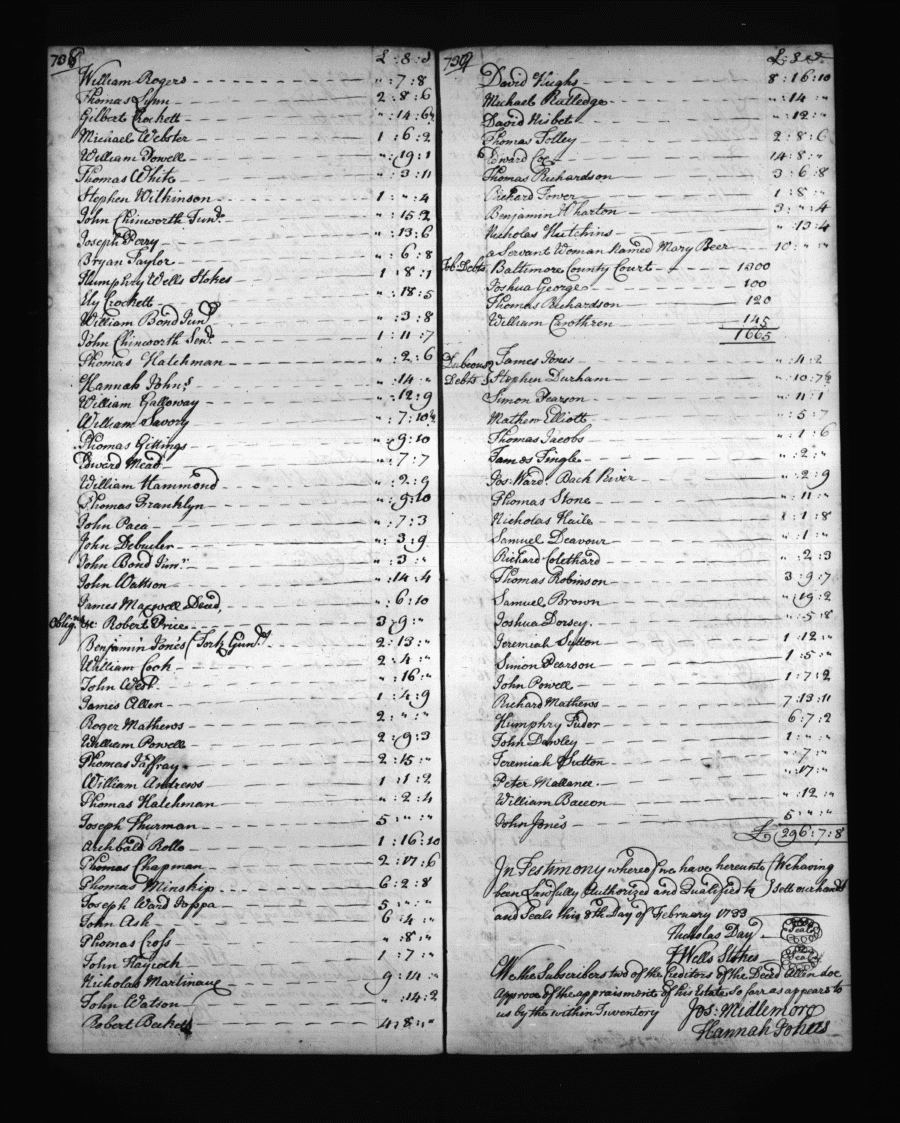 738
£ : s : d
William Rogers " : 7 : 8
Thomas Lynn 2 : 8 : 6
Gilbert Crockett " : 14 : 6
Michael Webster 1 : 6 : 2
William Powell " : 19 : 1
Thomas White " : 3 : 11
Stephen Wilkinson 1 : " : 4
John Chinworth Junr. " : 15 : 2
Joseph Perry " : 13 : 6
Bryan Taylor " : 6 : 8
Humphry Wells Stokes 1 : 8 : 1
Ely Crockett " : 18 : 5
William Bond Junr " : 3 : 8
John Chinworth Senr. 1 : 11 : 7
Thomas Hatchman " : 2 : 6
Hannah Johns " : 14 : "
William Galloway " : 12 : 9
William Savory " : 7 : 10½
Thomas Gittings " : 9 : 10
Edward Mead " : 7 : 7
William Hammond " : 2 : 9
Thomas Franklyn " : 9 : 10
John Paca " : 7 : 3
John Debuler " : 3 : 9
John Bond Junr " : 3 : "
John Wattson " : 14 : 4
James Maxwell Deced. " : 6 : 10
Robert Price 3 : 9 : "
Benjamin Jones (York Gund.) 2 : 13 : "
William Cook 2 : 4 : "
John West " : 16 : "
James Allen 1 : 4 : 9
Roger Mathews 2 : " : "
William Powell 2 : 9 : 3
Thomas Jaffray 2 : 15 : "
William Andrews 1 : 1 : 2
Thomas Hatchman " : 2 : 4
Joseph Thurman 5 : " : "
Archbald Rollo 1 : 16 : 10
Thomas Chapman 2 : 17 : 6
Thomas Minship 6 : 2 : 8
Joseph Ward Joppa 5 : " : "
John Ash 6 : 4 : "
Thomas Cross " : 8 : "
John Hayroth 1 : 7 : "
Nicholas Martinaux 9 : 14 : "
John Watson " : 14 : 2
Robert Beckett 4 : 8 : "
739
£ : s : d
David Hughs 8 : 16 : 10
Michael Rutledge " : 14 : "
David Hisbet " : 12 : "
Thomas Tolley 2 : 8 : 6
Edward Cox 14 : 8 : "
Thomas Richardson 3 : 6 : 8
Richard Fower 1 : 8 : "
Benjamin Wharton 3 : " : 4
Nicholas Hutchins " : 13 : 4
a Servant Woman Named Mary Beer 10 : " : "
Tob. Debts Baltimore County Court 1300
Joshua George 100
Thomas Richardson 120
William Carothren 145
1665
Dubeous James Jones " : 4 : 2
Debts Stephen Durham " : 10 : 7½
Simon Pearson " : 11 : 1
Mathew Elliott " : 5 : 7
Thomas Jacobs " : 1 : 6
James Fingle " : 2 : "
Jos: Ward. Back River " : 2 : 9
Thomas Stone " : 11 : "
Nicholas Haile 1 : 1 : 8
Samuel Deavour " : 1 : "
Richard Colethard " : 2 : 3
Thomas Robinson 3 : 9 : 7
Samuel Brown " : 19 : 2
Joshua Dorsey. " : 5 : 8
Jeremiah Sutton 1 : 12 : "
Simon Pearson 1 : 5 : "
John Powell 1 : 7 : 2
Richard Mathews 7 : 13 : 11
Humphry Tudor 6 : 7 : 2
John Dawley 1 : " : "
Jeremiah Sutton " : 7 : "
Peter Mallanee " : 17 : "
William Baccon " : 12 : "
John Jones 5 : " : "
£ 296 : 7 : 8
In Testimony whereof we have hereunto (We having
been Lawfully Authorized and Qualified to) sett our hands
and Seals this 8th Day of February 1733
Nicholas Day Seale
H Wells Stokes Seale
We the Subscribers two of the Creditors of the Deced Allen doe
Approve of the appraisments of his Estate so far as appears to
us by the within Inventory Jos: Midlemore
Hannah Johns